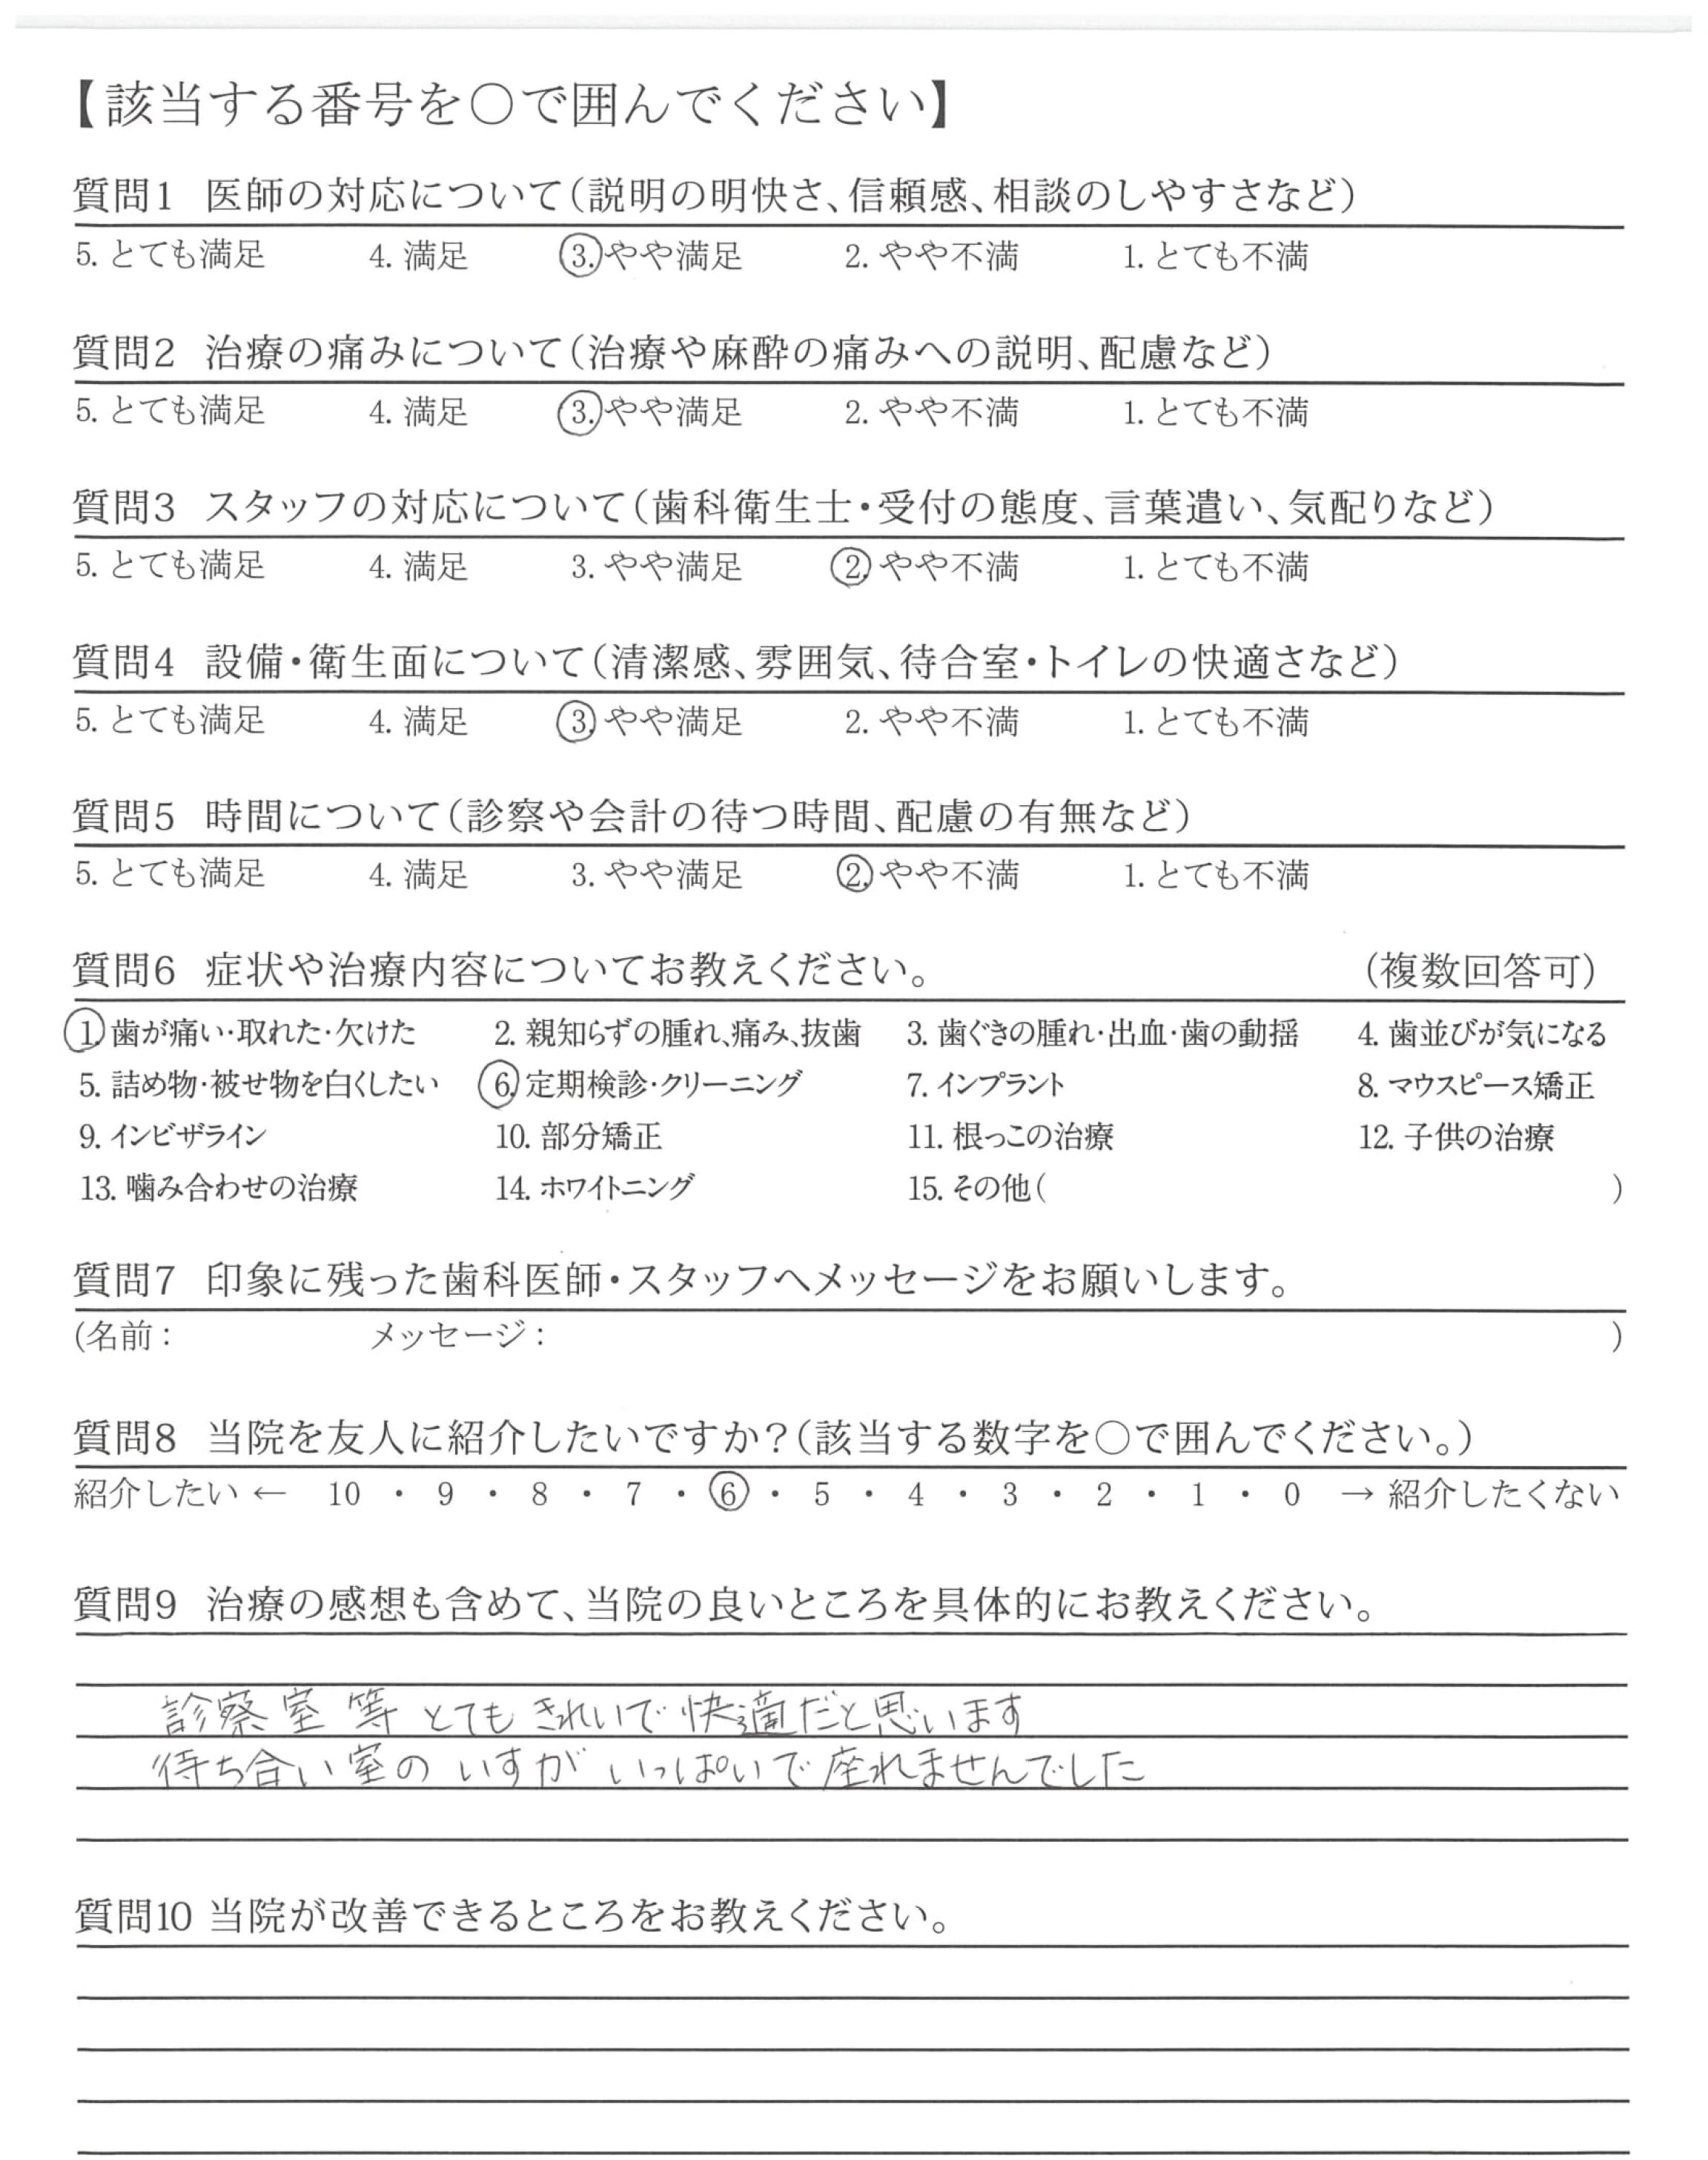 【該当する番号を〇で囲んでください】
質問1 医師の対応について（説明の明快さ、信頼感、相談のしやすさなど）
5. とても満足 4. 満足 3. やや満足 2. やや不満 1. とても不満
質問2 治療の痛みについて（治療や麻酔の痛みへの説明、配慮など）
5. とても満足 4. 満足 3. やや満足 2. やや不満 1. とても不満
質問3 スタッフの対応について（歯科衛生士・受付の態度、言葉遣い、気配りなど）
5. とても満足 4. 満足 3. やや満足 2. やや不満 1. とても不満
質問4 設備・衛生面について（清潔感、雰囲気、待合室・トイレの快適さなど）
5. とても満足 4. 満足 3. やや満足 2. やや不満 1. とても不満
質問5 時間について（診察や会計の待つ時間、配慮の有無など）
5. とても満足 4. 満足 3. やや満足 2. やや不満 1. とても不満
質問6 症状や治療内容についてお教えください。 （複数回答可）
1. 歯が痛い・取れた・欠けた 2. 親知らずの腫れ、痛み、抜歯 3. 歯ぐきの腫れ・出血・歯の動揺 4. 歯並びが気になる
5. 詰め物・被せ物を白くしたい 6. 定期検診・クリーニング 7. インプラント 8. マウスピース矯正
9. インビザライン 10. 部分矯正 11. 根っこの治療 12. 子供の治療
13. 噛み合わせの治療 14. ホワイトニング 15. その他（ ）
質問7 印象に残った歯科医師・スタッフへメッセージをお願いします。
（名前： メッセージ： ）
質問8 当院を友人に紹介したいですか？（該当する数字を〇で囲んでください。）
紹介したい ← 10 ・ 9 ・ 8 ・ 7 ・ 6 ・ 5 ・ 4 ・ 3 ・ 2 ・ 1 ・ 0 → 紹介したくない
質問9 治療の感想も含めて、当院の良いところを具体的にお教えください。
診察室等とてもきれいで快適だと思います
待ち合い室のいすがいっぱいで座れませんでした
質問10 当院が改善できるところをお教えください。